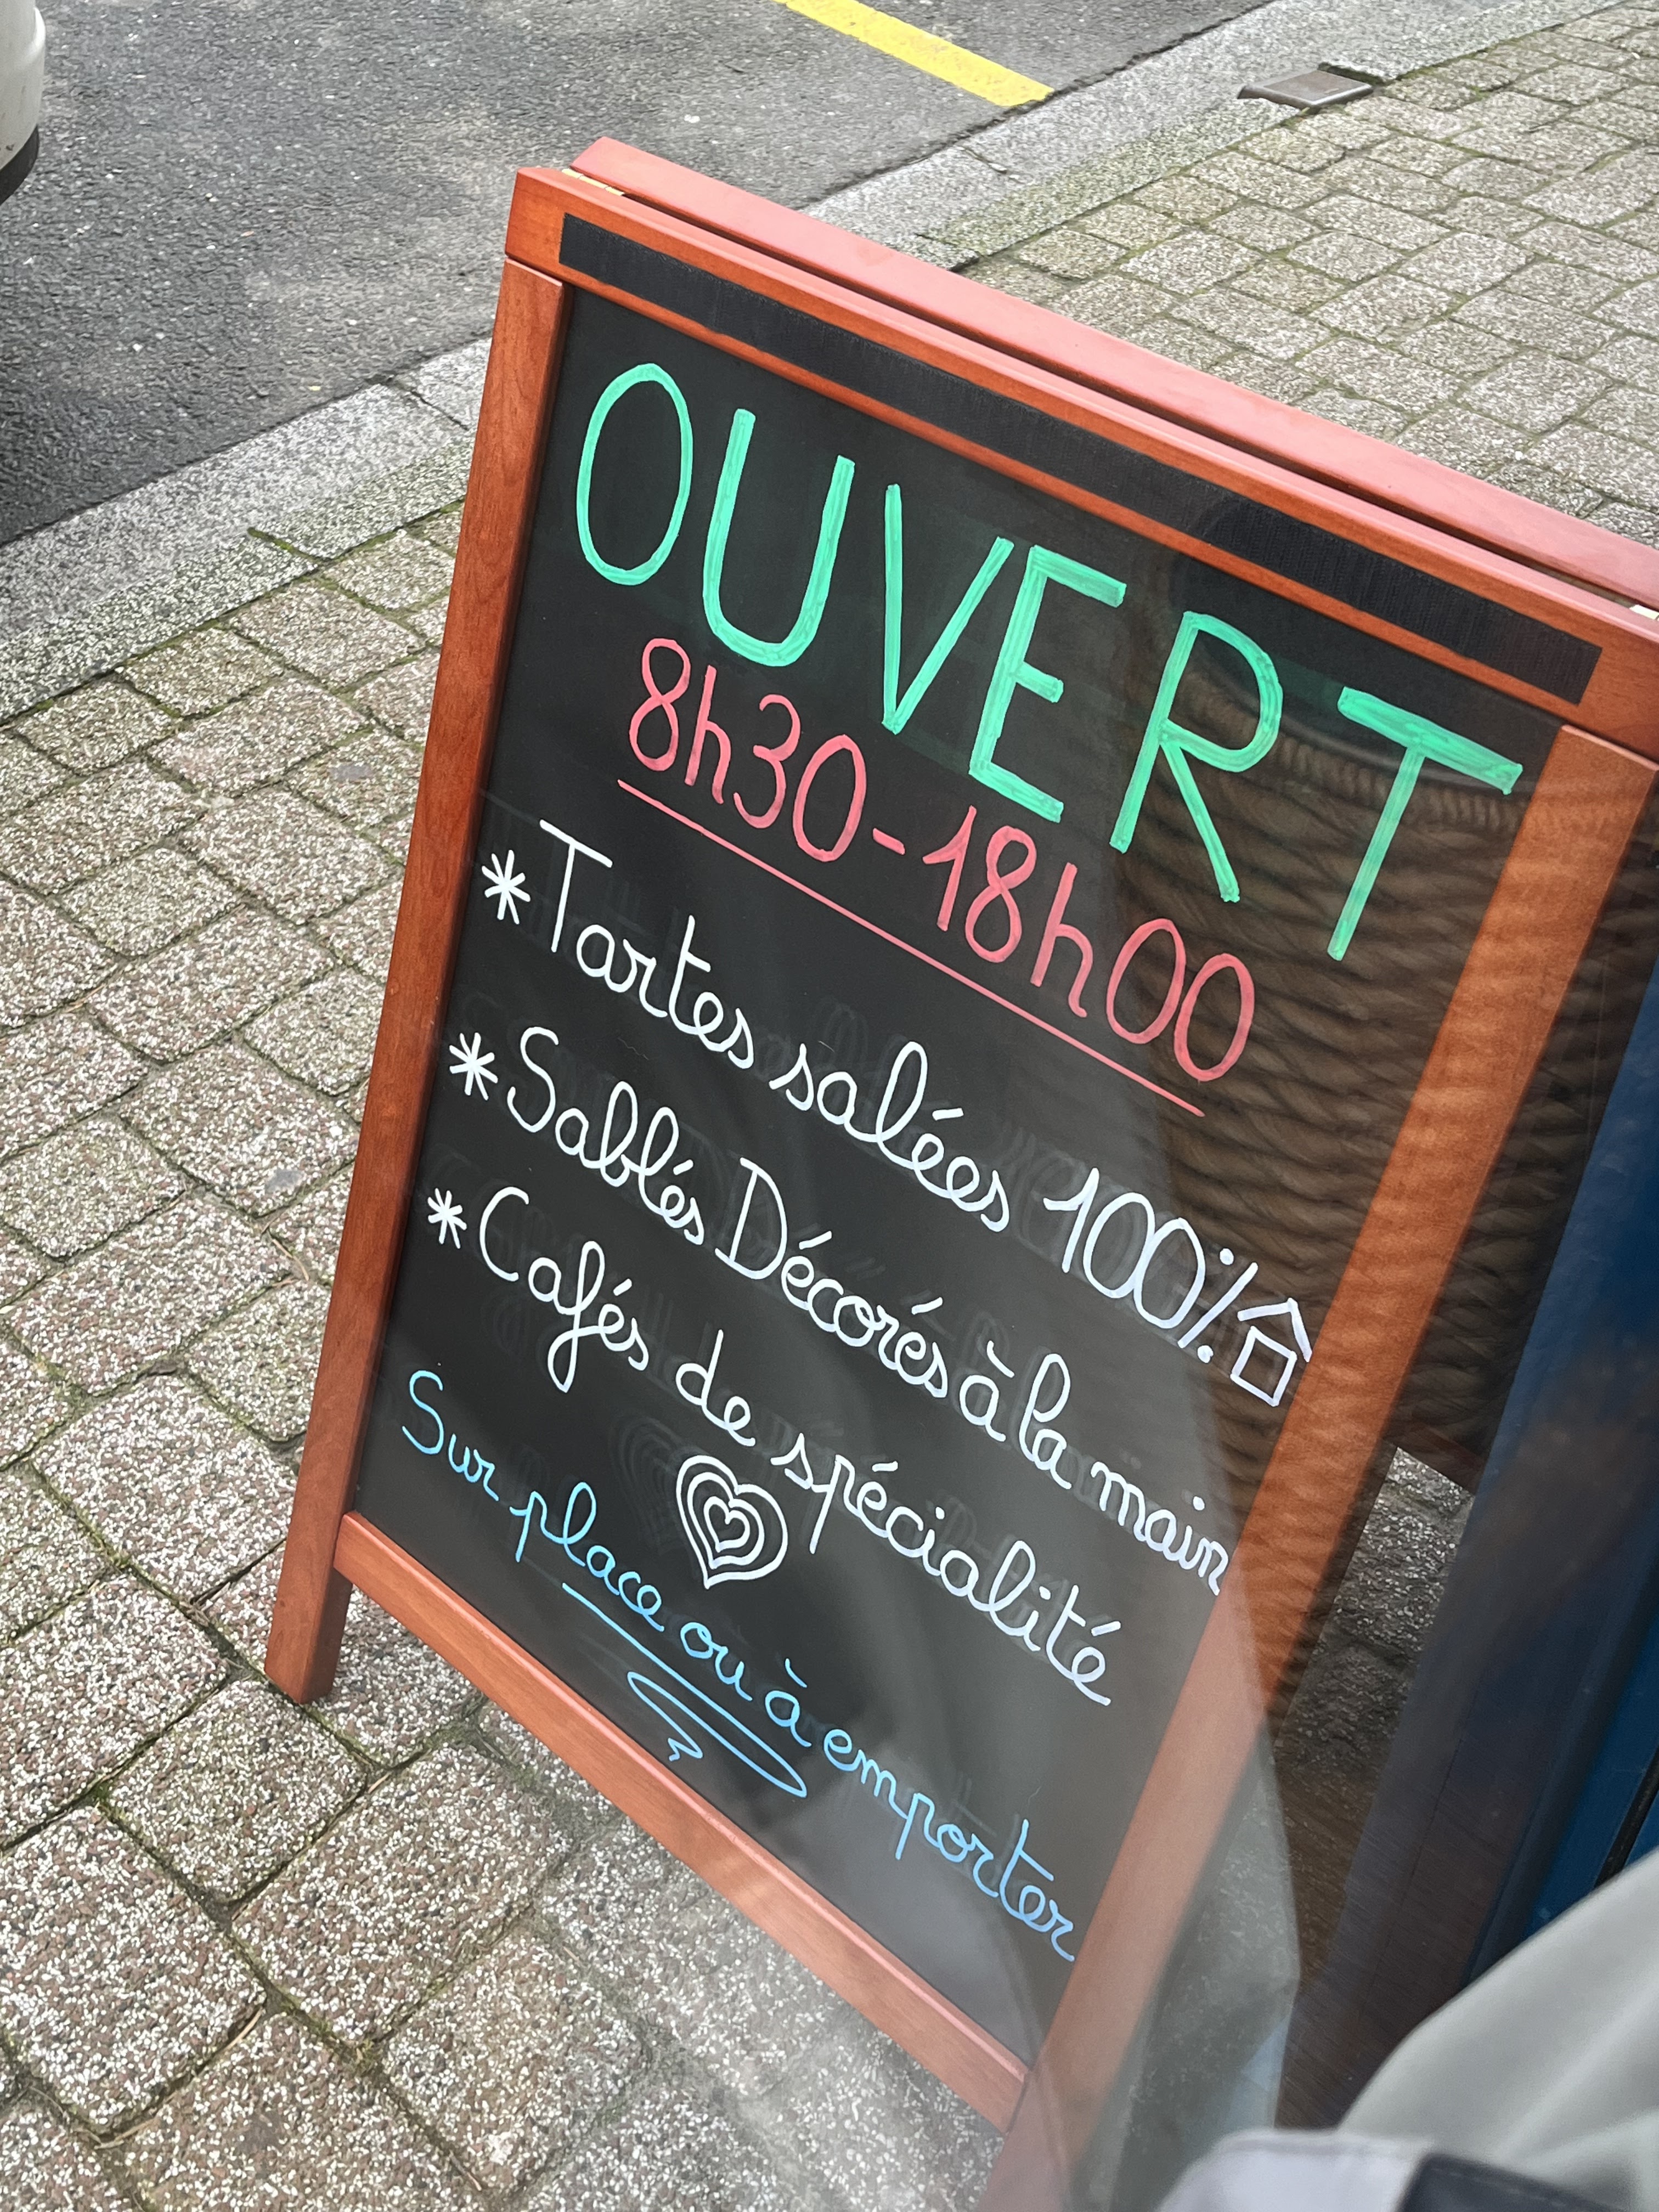 OUVERT
8h30-18h00
*Tartes salées 100%
*Sablés Décorés à la main
*Cafés de spécialité
Sur place ou à emporter